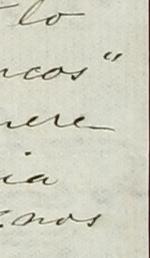 lo
ncos"
nere
ia
enos